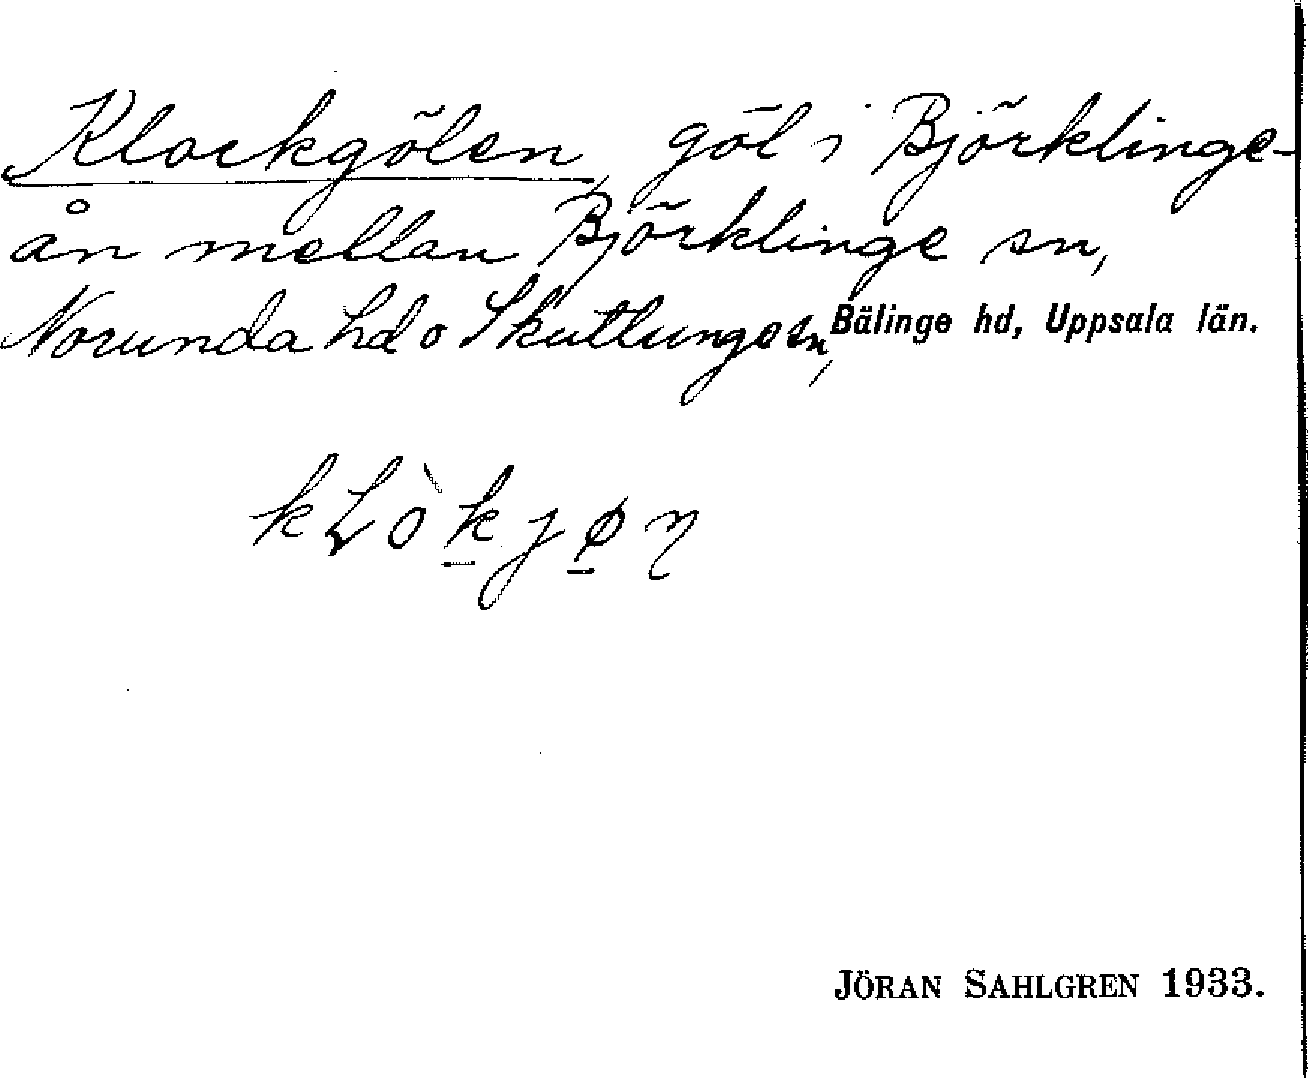 Klockgölen, göl i Björklinge-
ån mellan Björklinge sn,
Norunda hd o Skuttunge sn, Bälinge hd, Uppsala län.
kLòkjøn
JÖRAN SAHLGREN 1933.